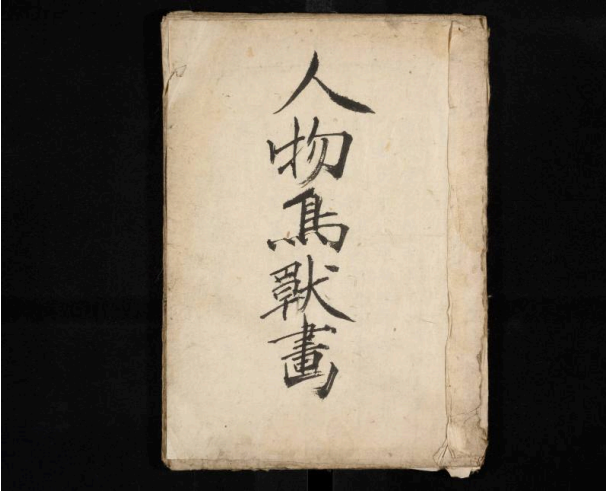 人物鳥獸畫